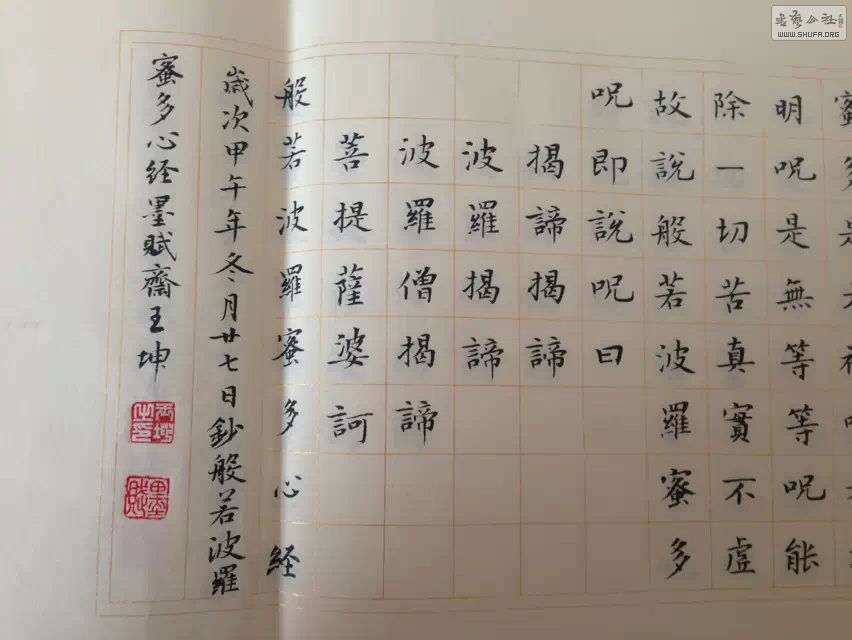 明呪是無等等呪能
除一切苦真實不虛
故說般若波羅蜜多
呪即說呪曰
揭諦揭諦
波羅揭諦
波羅僧揭諦
菩提薩婆訶
般若波羅蜜多心経
歲次甲午年冬月廿七日鈔般若波羅
蜜多心経墨賦齋王坤
王坤之印
墨賦
書藝公社
WWW.SHUFA.ORG